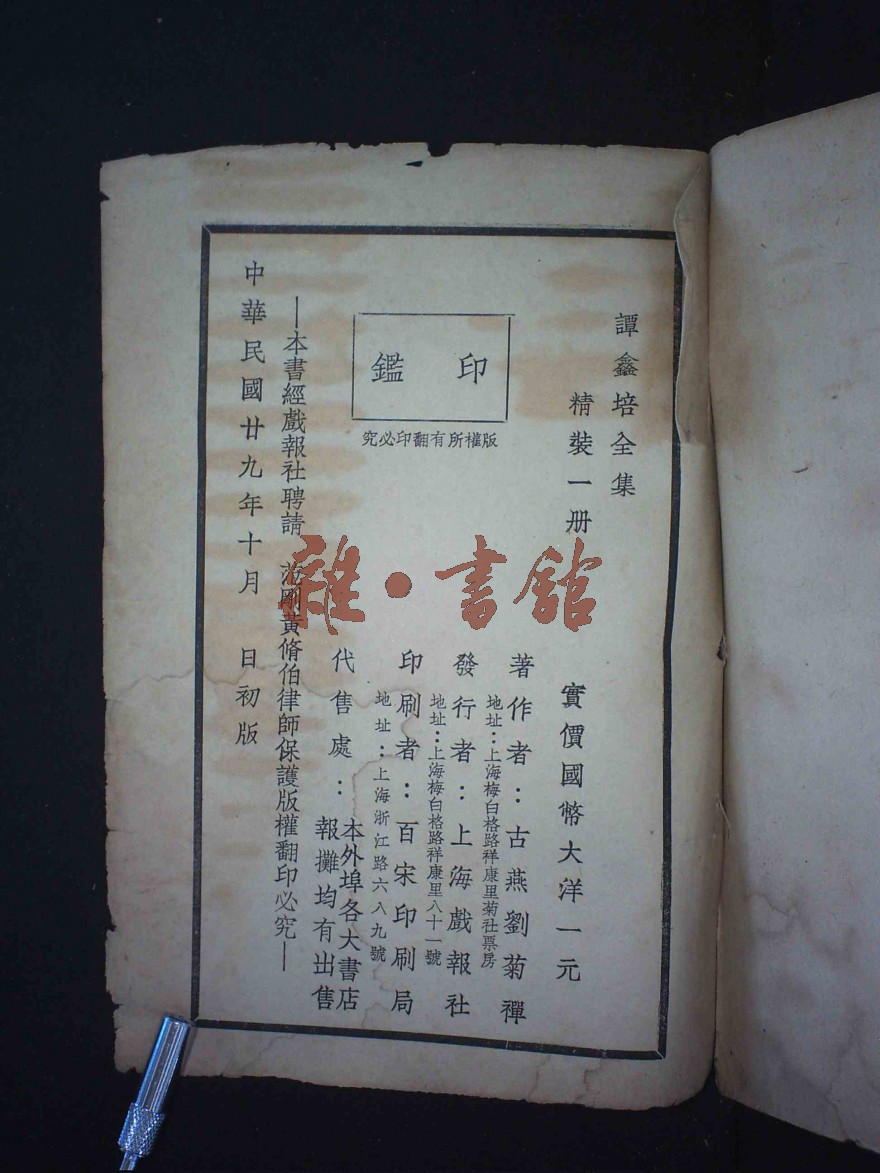 譚鑫培全集
精裝一册
實價國幣大洋一元
印鑑
版權所有翻印必究
著作者：古燕劉菊禪
地址：上海梅白格路祥康里菊社票房
發行者：上海戲報社
地址：上海梅白格路祥康里八十一號
印刷者：百宋印刷局
地址：上海浙江路六八九號
代售處：
本外埠各大書店
報攤均有出售
—本書經戲報社聘請 范剛黃脩伯律師保護版權翻印必究—
中華民國廿九年十月 日初版
雜·書館